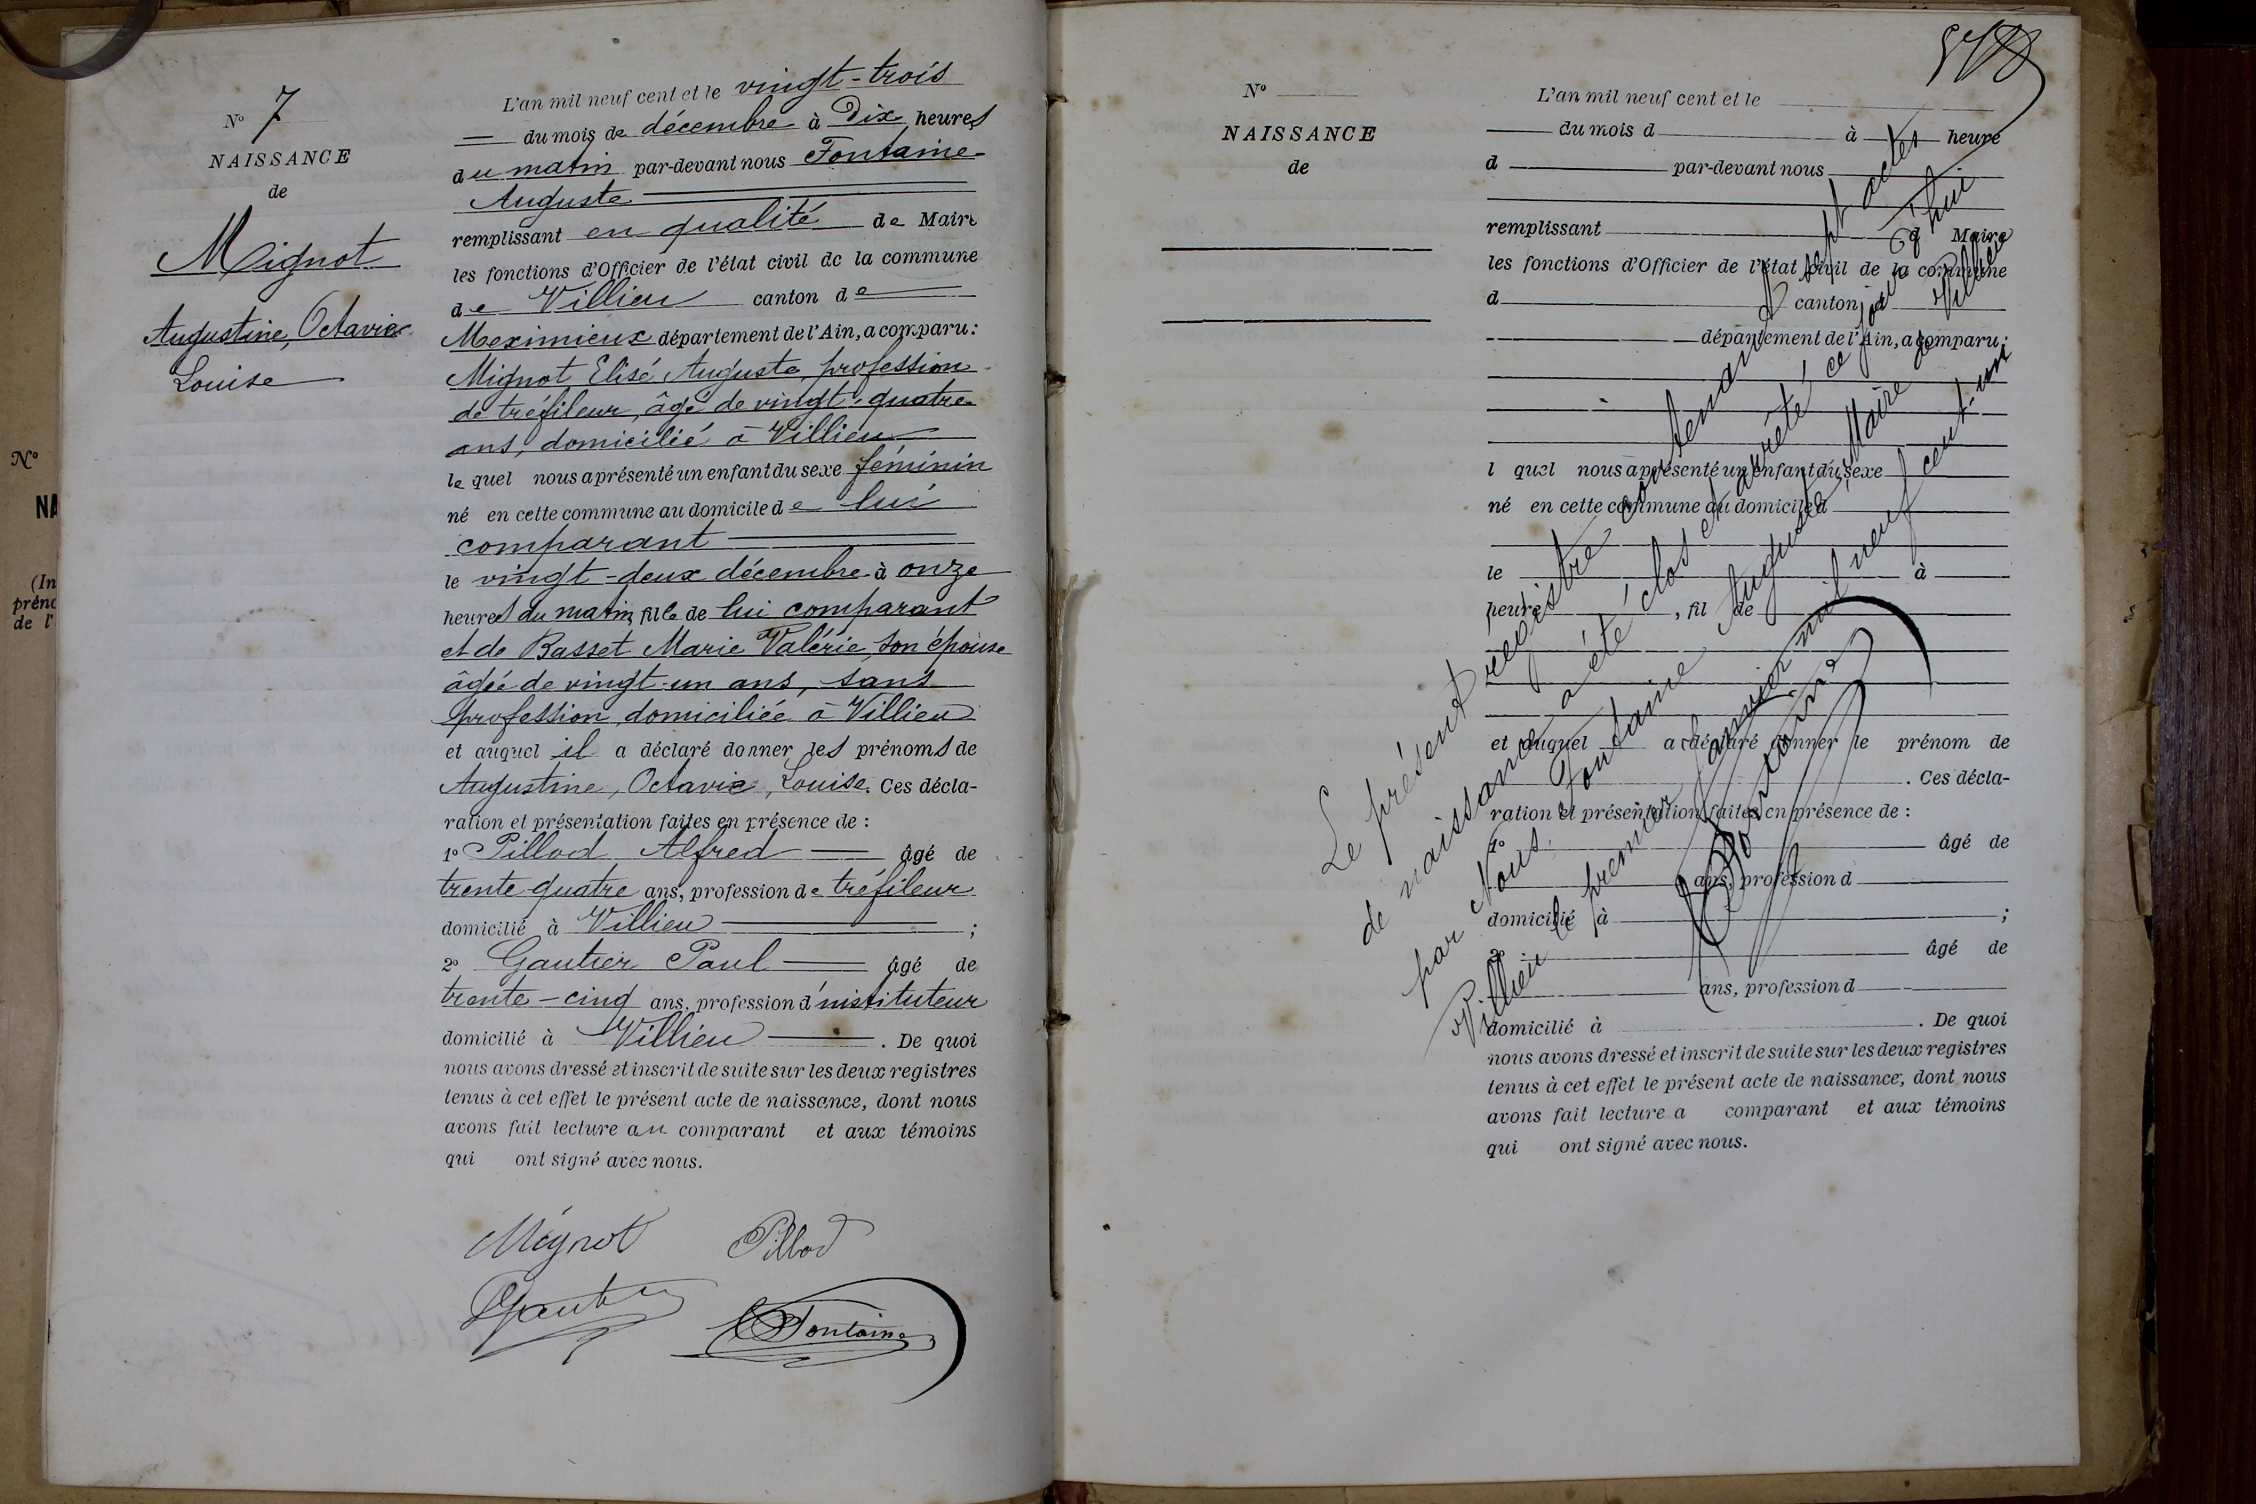 N° 7
NAISSANCE
de
Mignot
Augustine, Octavie
Louise
L'an mil neuf cent et le vingt-trois
du mois de décembre à Dix heures
du matin par-devant nous Fontaine
Auguste
remplissant en qualité de Maire
les fonctions d'Officier de l'état civil de la commune
de Villieu canton de
Meximieux département de l'Ain, a comparu:
Mignot Elisé Auguste, profession
de tréfileur, âgé de vingt-quatre
ans, domicilié à Villieu
le quel nous a présenté un enfant du sexe féminin
né en cette commune au domicile de lui
comparant
le vingt-deux décembre à onze
heures du matin, fille de lui comparant
et de Basset Marie Valérie, son épouse
âgée de vingt-un ans, sans
profession, domiciliée à Villieu
et auquel il a déclaré donner les prénoms de
Augustine, Octavie, Louise. Ces décla-
ration et présentation faites en présence de :
1° Pillod Alfred âgé de
trente-quatre ans, profession de tréfileur
domicilié à Villieu ;
2° Gautier Paul âgé de
trente-cinq ans, profession d'instituteur
domicilié à Villieu . De quoi
nous avons dressé et inscrit de suite sur les deux registres
tenus à cet effet le présent acte de naissance, dont nous
avons fait lecture au comparant et aux témoins
qui ont signé avec nous.
Mignot Pillod
Gautier Fontaine
N°
NA
(In
préno
de l'
N°
NAISSANCE
de
L'an mil neuf cent et le
du mois d à heure
d par-devant nous
remplissant d Maire
les fonctions d'Officier de l'état civil de la commune
d canton d
département de l'Ain, a comparu:
l quel nous a présenté un enfant du sexe
né en cette commune au domicile d
le à
heure , fil de
et auquel a déclaré donner le prénom de
. Ces décla-
ration et présentation faites en présence de :
1° âgé de
ans, profession d
domicilié à ;
2° âgé de
ans, profession d
domicilié à . De quoi
nous avons dressé et inscrit de suite sur les deux registres
tenus à cet effet le présent acte de naissance, dont nous
avons fait lecture a comparant et aux témoins
qui ont signé avec nous.
Le présent régistre contenant sept actes
de naissance a été clos et arrêté ce jourd'hui
par Nous Fontaine Auguste, Maire de Villieu
Villieu le premier Janvier mil neuf cent-un
Fontaine